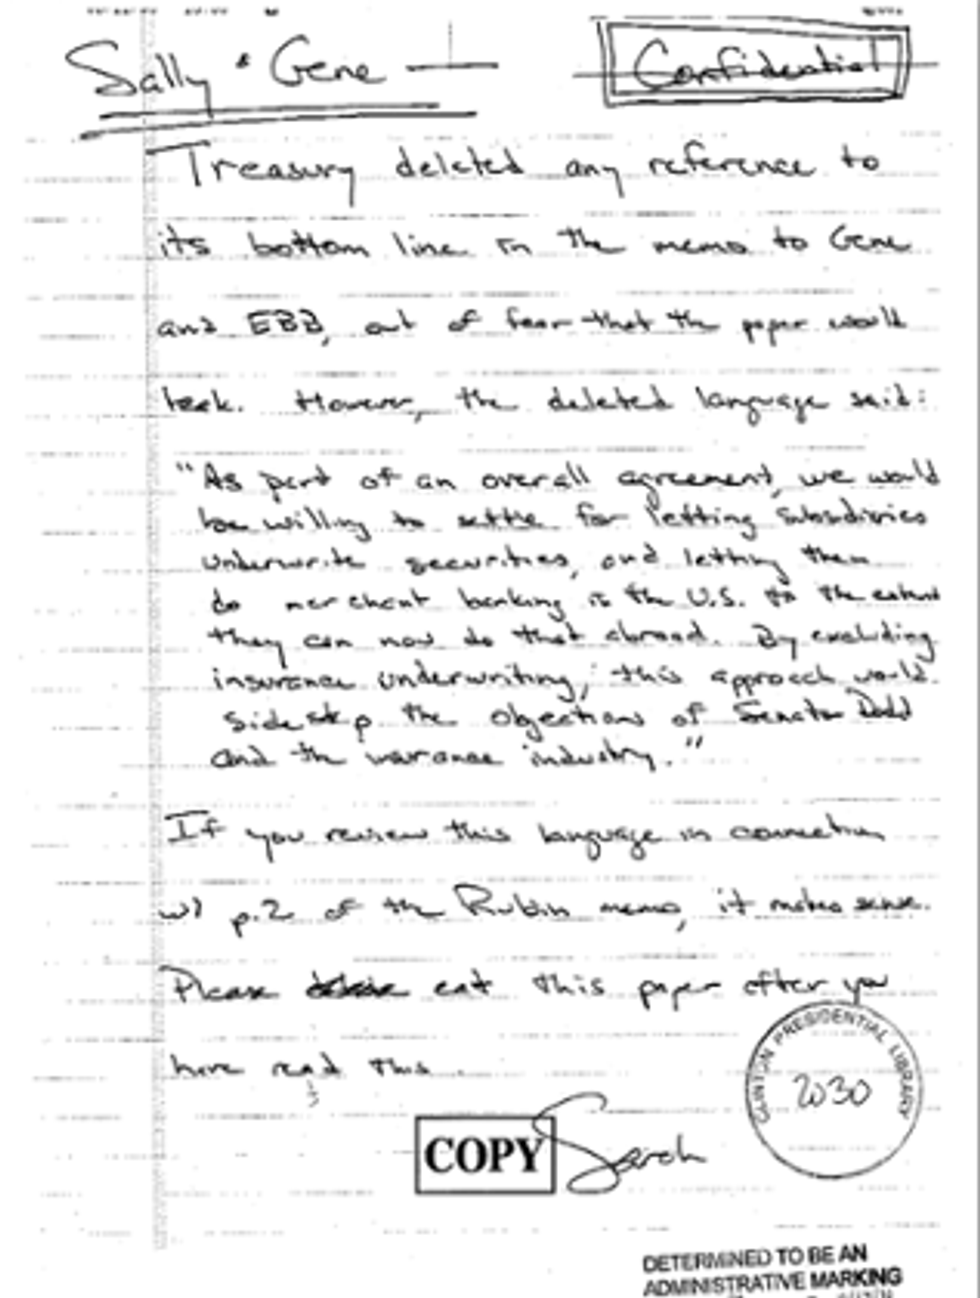 Sally & Gene —
Confidential
Treasury deleted any reference to
its bottom line in the memo to Gene
and EBB, out of fear that the paper would
leak. However, the deleted language said:
"As part of an overall agreement, we would
be willing to settle for letting subsidiaries
underwrite securities, and letting them
do merchant banking in the U.S. to the extent
they can now do that abroad. By excluding
insurance underwriting, this approach would
sidestep the objections of Senator Dodd
and the insurance industry."
If you review this language in connection
w/ p.2 of the Rubin memo, it makes sense.
Please eat this paper after you
have read this.
COPY
Sarah
CLINTON PRESIDENTIAL LIBRARY
2030
DETERMINED TO BE AN
ADMINISTRATIVE MARKING